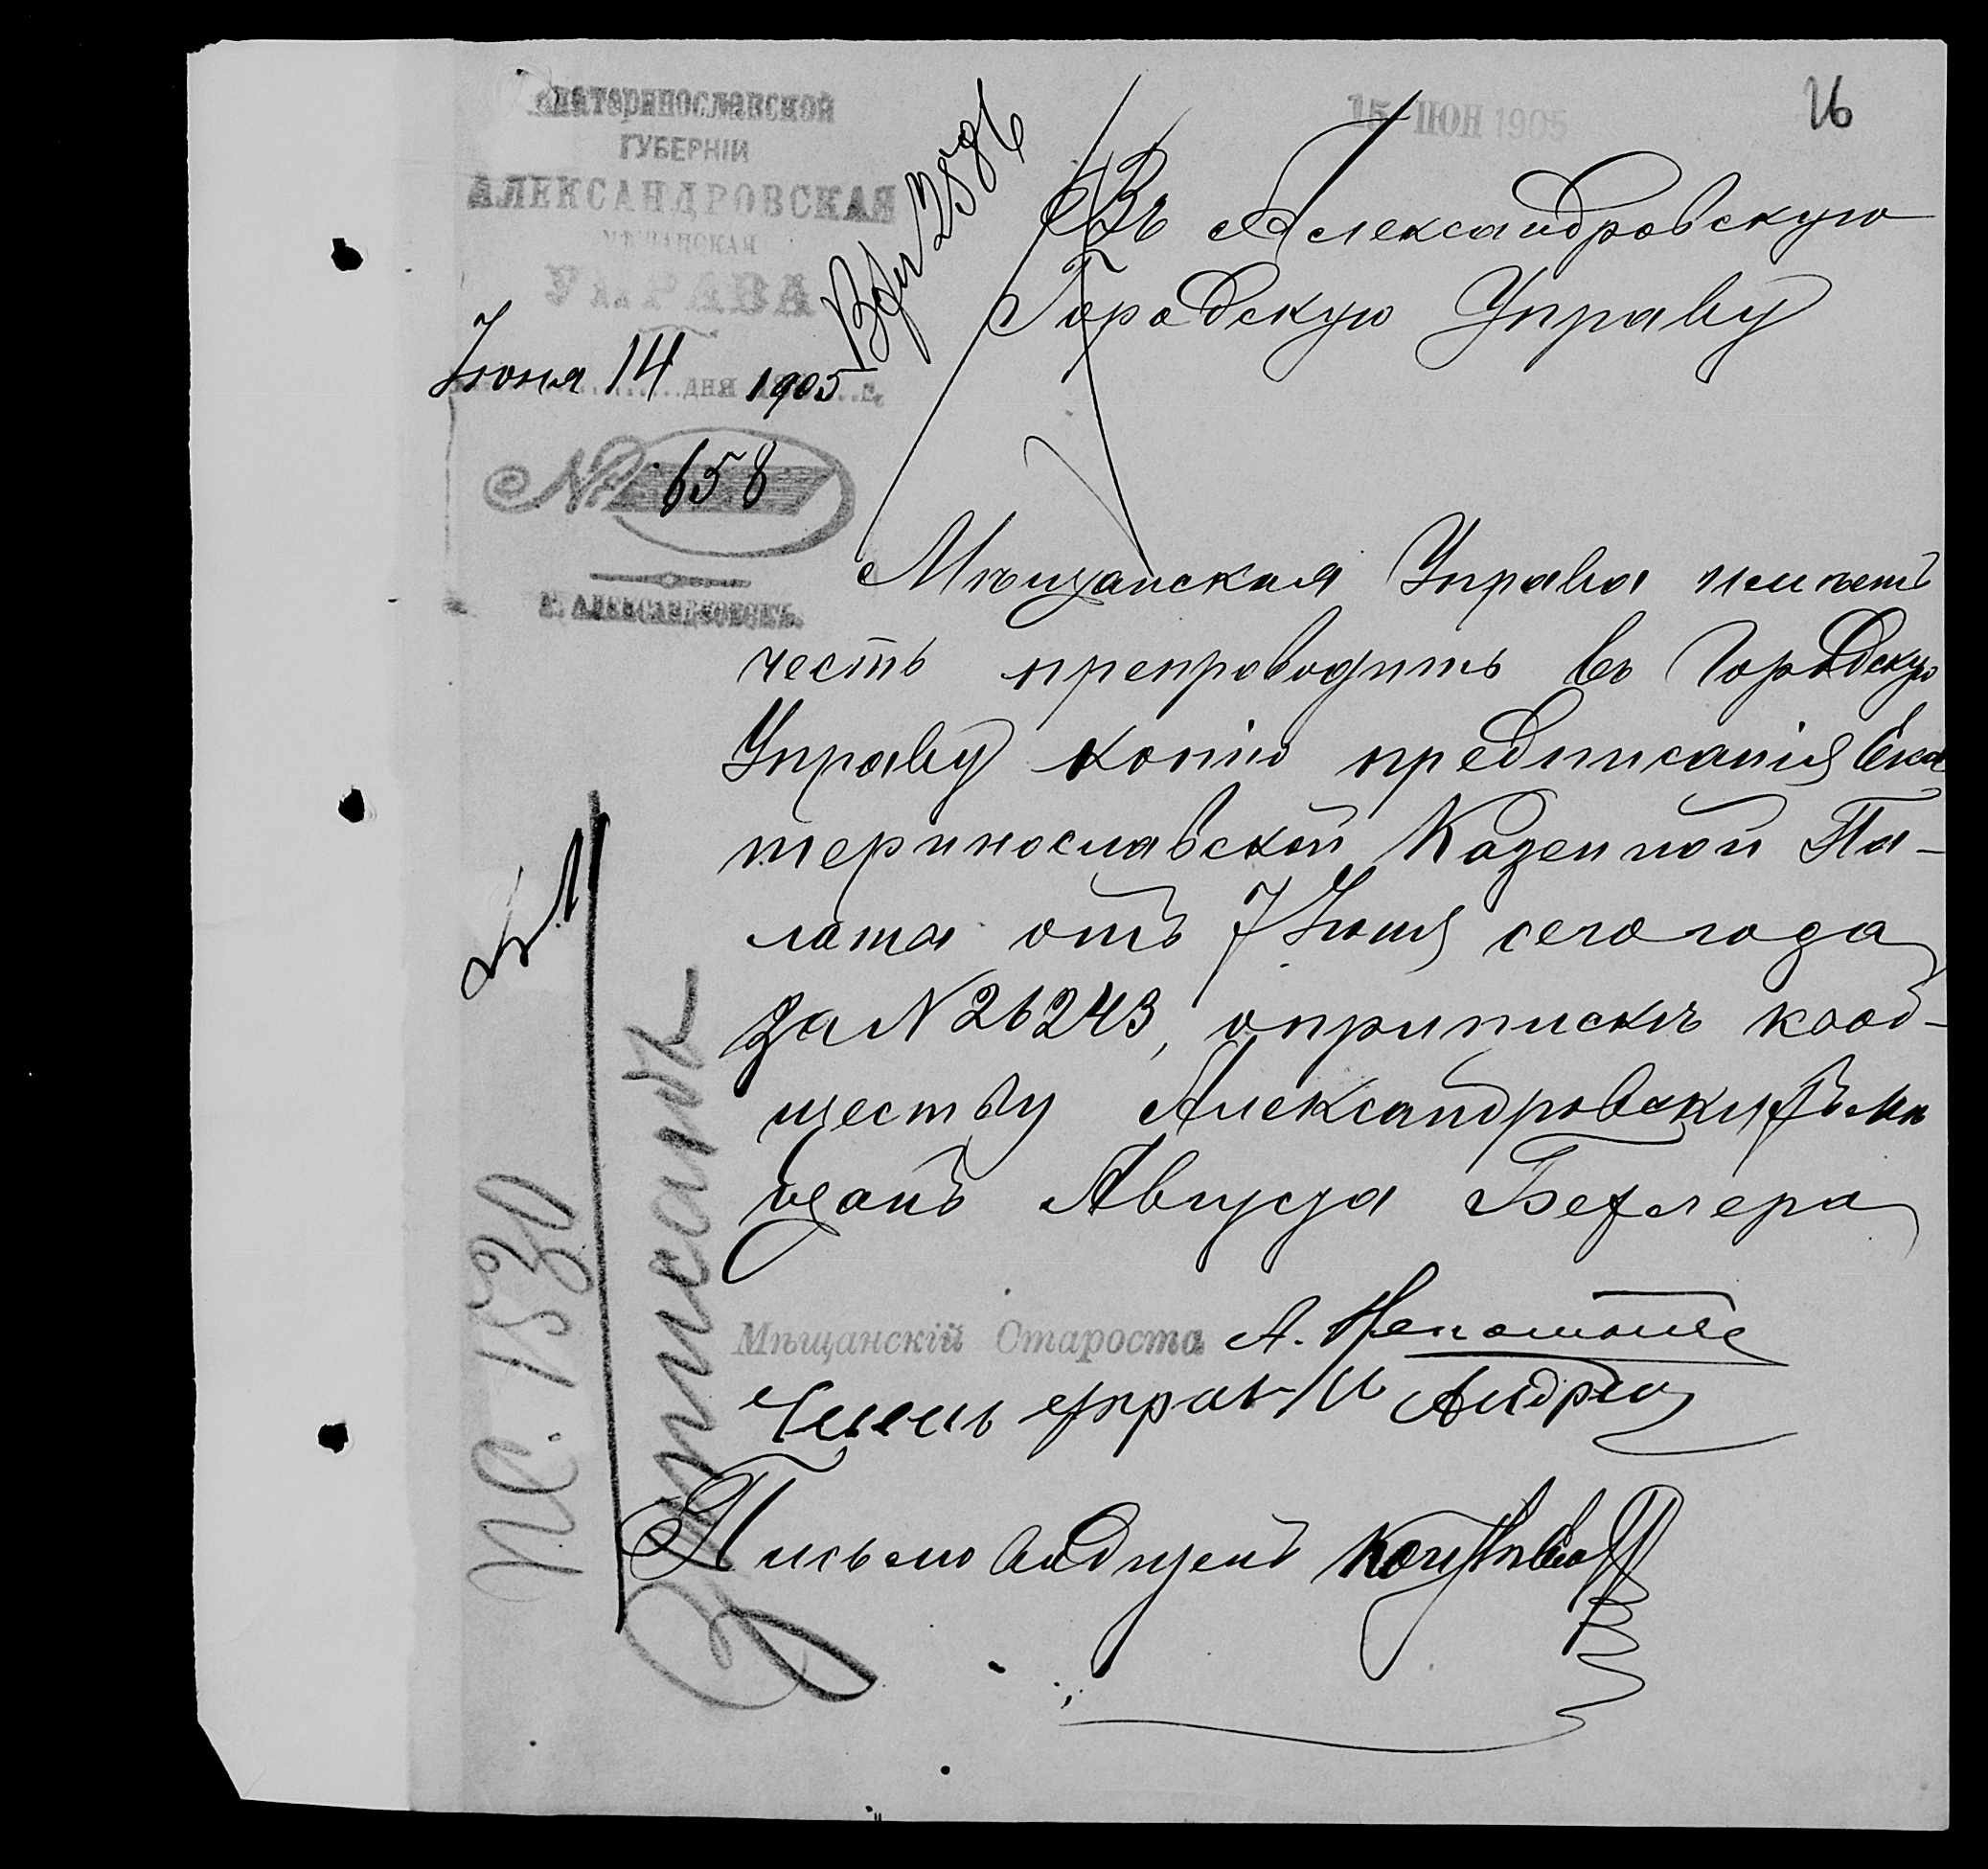 Екатеринославской
ГУБЕРНІИ
АЛЕКСАНДРОВСКАЯ
МѢЩАНСКАЯ
УПРАВА
Іюня 14 дня 1905 г.
№ 658
Г. АЛЕКСАНДРОВСКЪ.
15 ІЮН 1905
16
Вх № 2586
Въ Александровскую
Городскую Управу
Мѣщанская Управа имѣетъ
честь препроводить въ Городскую
Управу копію предписанія Ека
теринославской Казенной Па-
латы отъ 7 Іюня сего года
за № 26243, о припискѣ к ооб-
ществу Александровскихъ мѣ
щанъ Августа Бехлера
Мѣщанскій Староста А.
Членъ управы И Андре
Письмоводитель
Записанъ
1830